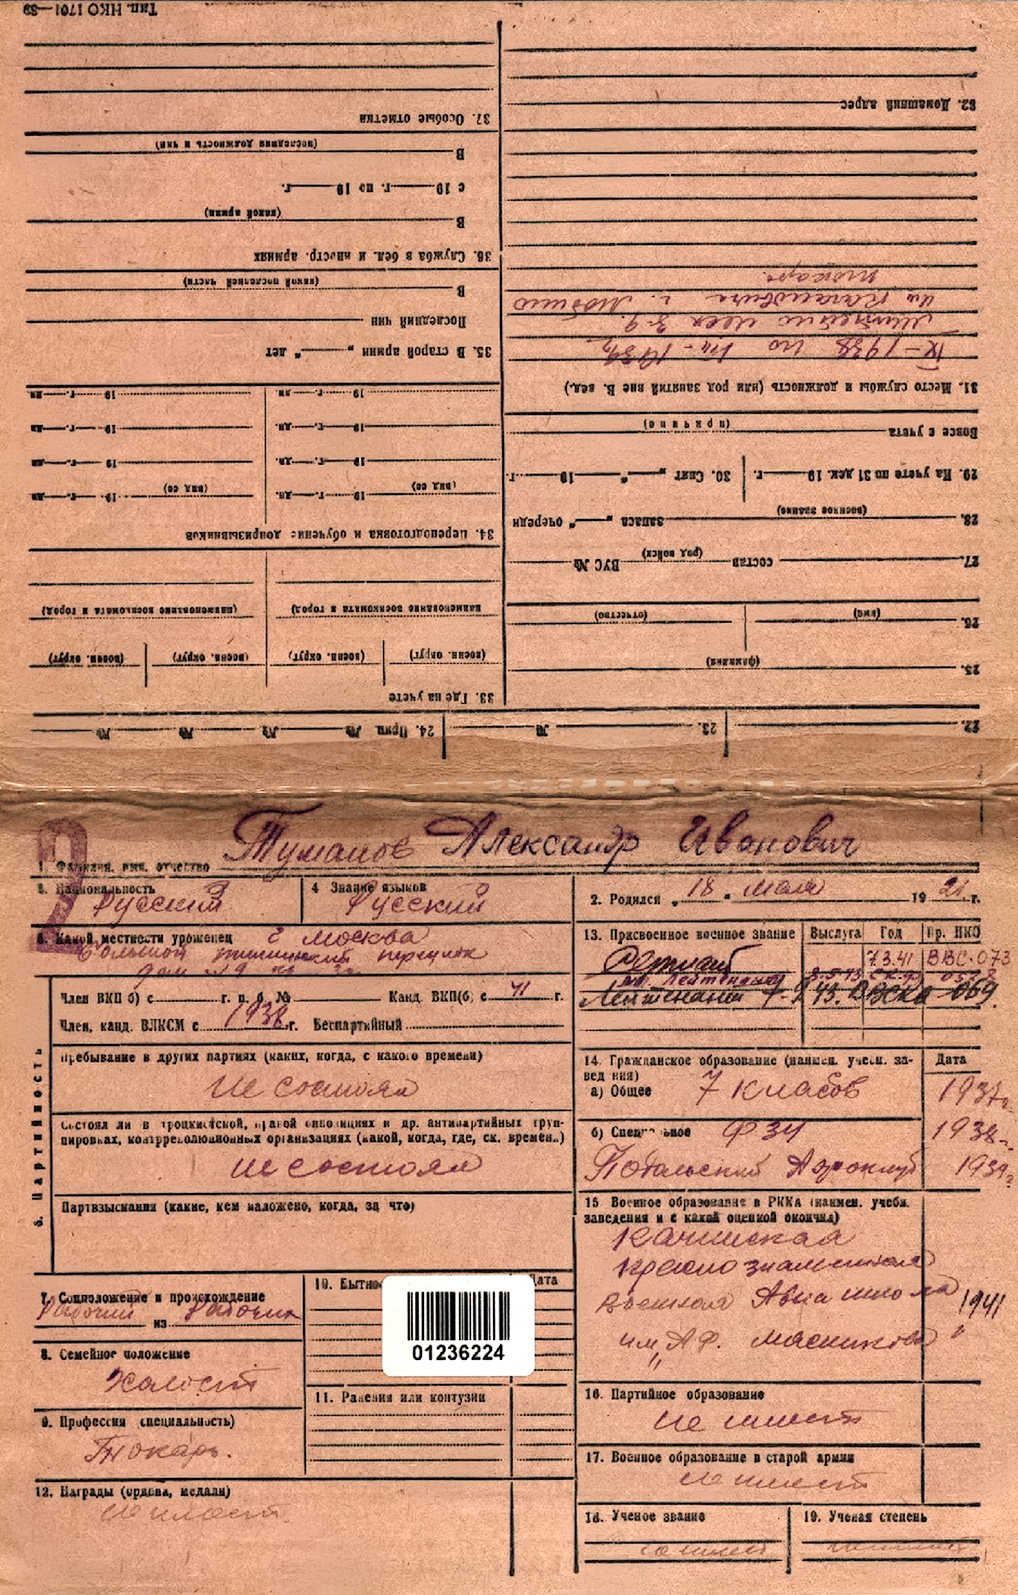 Тип. НКО 1701—39
37. Особые отметки
(последняя должность и чин)
В
с 19 г. по 19 г.
В
(какой армии)
36. Служба в бел. и иностр. армиях
В
(какой последней части)
Последний чин
35. В старой армии „ “ лет
19 г. дн. 19 г. дн.
19 г. дн. 19 г. дн.
19 г. дн. 19 г. дн.
(вид сс) 19 г. дн. (вид сс) 19 г. дн.
34. Переподготовка и обучение допризывников
наименование военкомата и город) (наименование военкомата и город)
(воен. округ) (воен. округ) (воен. округ) (воен. округ)
33. Где на учете
32. Домашний адрес
IX-1938 по VIII-1939г.
им Кагановича г. Люблино
токарь
31. Место службы и должность (или род занятий вне В. вед.)
Вовсе с учета
(причина)
29. На учете по 31 дек. 19 г. 30. Снят „ “ 19 г.
28. (военное звание) запаса „ “ очереди
27. состав (род войск) ВУС №
26. (имя) (отчество)
25. (фамилия)
22. 23. № 24. Приц. № № № №
2
1 Фамилия, имя, отчество Туманов Александр Иванович
3. Национальность Русский
4 Знание языков Русский
2. Родился „18“ мая 1921 г.
5. Какой местности уроженец г Москва
Большой переулок
дом №9
6. Партийность
Член ВКП б) с г. п. б. № Канд. ВКП(б) с 41 г.
Член, канд. ВЛКСМ с 1938 г. Беспартийный
Пребывание в других партиях (каких, когда, с какого времени)
не состоял
Состоял ли в троцкистской, правой оппозициях и др. антипартийных груп-
пировках, контрреволюционных организациях (какой, когда, где, ск. времен.)
не состоял
Партвзыскания (какие, кем наложено, когда, за что)
7. Соцположение и происхождение
Рабочий из Рабочих
8. Семейное положение
Холост
9. Профессия (специальность)
Токарь.
10. Бытно Дата
01236224
11. Ранения или контузии
12. Награды (ордена, медали)
не имеет
13. Присвоенное военное звание Выслуга Год Пр. НКО
Сержант 7.3.41 ВВС-073
мл. Лейтенант
Лейтенант 069
14. Гражданское образование (наимен. учебн. за- Дата
ведения)
а) Общее 7 классов 1937г.
б) Специальное ФЗУ 1938г.
Подольский Аэроклуб 1939г
15 Военное образование в РККА (наимен. учебн.
заведения и с какой оценкой окончил)
Качинская
Краснознаменная
Военная Авиашкола 1941
им. А.Ф. Мясникова
16. Партийное образование
не имеет
17. Военное образование в старой армии
не имеет
18. Ученое звание
не имеет
19. Ученая степень